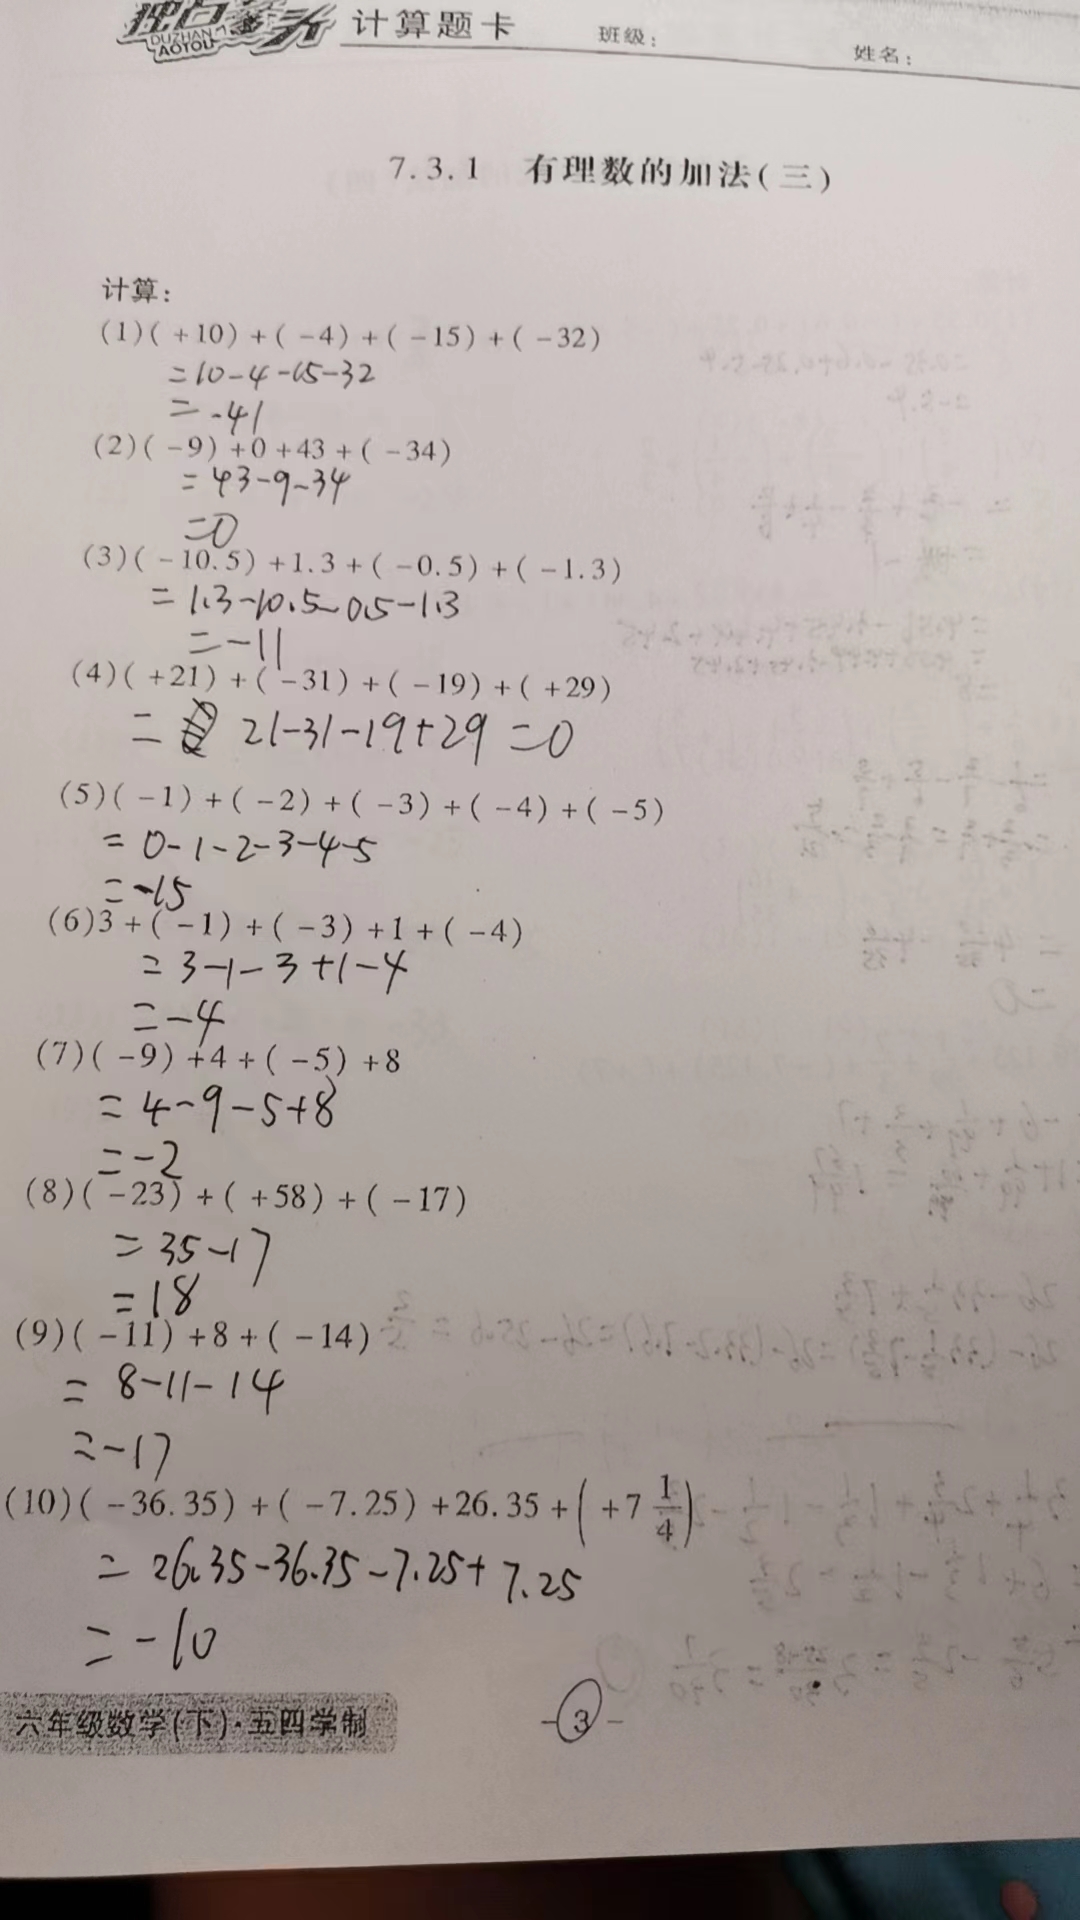 独占鳌头
DUZHAN
AOTOU
计算题卡 班级: 姓名:
7.3.1 有理数的加法(三)
计算:
(1)(+10)+(-4)+(-15)+(-32)
=10-4-15-32
=-41
(2)(-9)+0+43+(-34)
=43-9-34
=0
(3)(-10.5)+1.3+(-0.5)+(-1.3)
=1.3-10.5-0.5-1.3
=-11
(4)(+21)+(-31)+(-19)+(+29)
= 21-31-19+29=0
(5)(-1)+(-2)+(-3)+(-4)+(-5)
=0-1-2-3-4-5
=-15
(6)3+(-1)+(-3)+1+(-4)
=3-1-3+1-4
=-4
(7)(-9)+4+(-5)+8
=4-9-5+8
=-2
(8)(-23)+(+58)+(-17)
=35-17
=18
(9)(-11)+8+(-14)
=8-11-14
=-17
(10)(-36.35)+(-7.25)+26.35+(+7 1/4)
=26.35-36.35-7.25+7.25
=-10
六年级数学(下)·五四学制 -3-